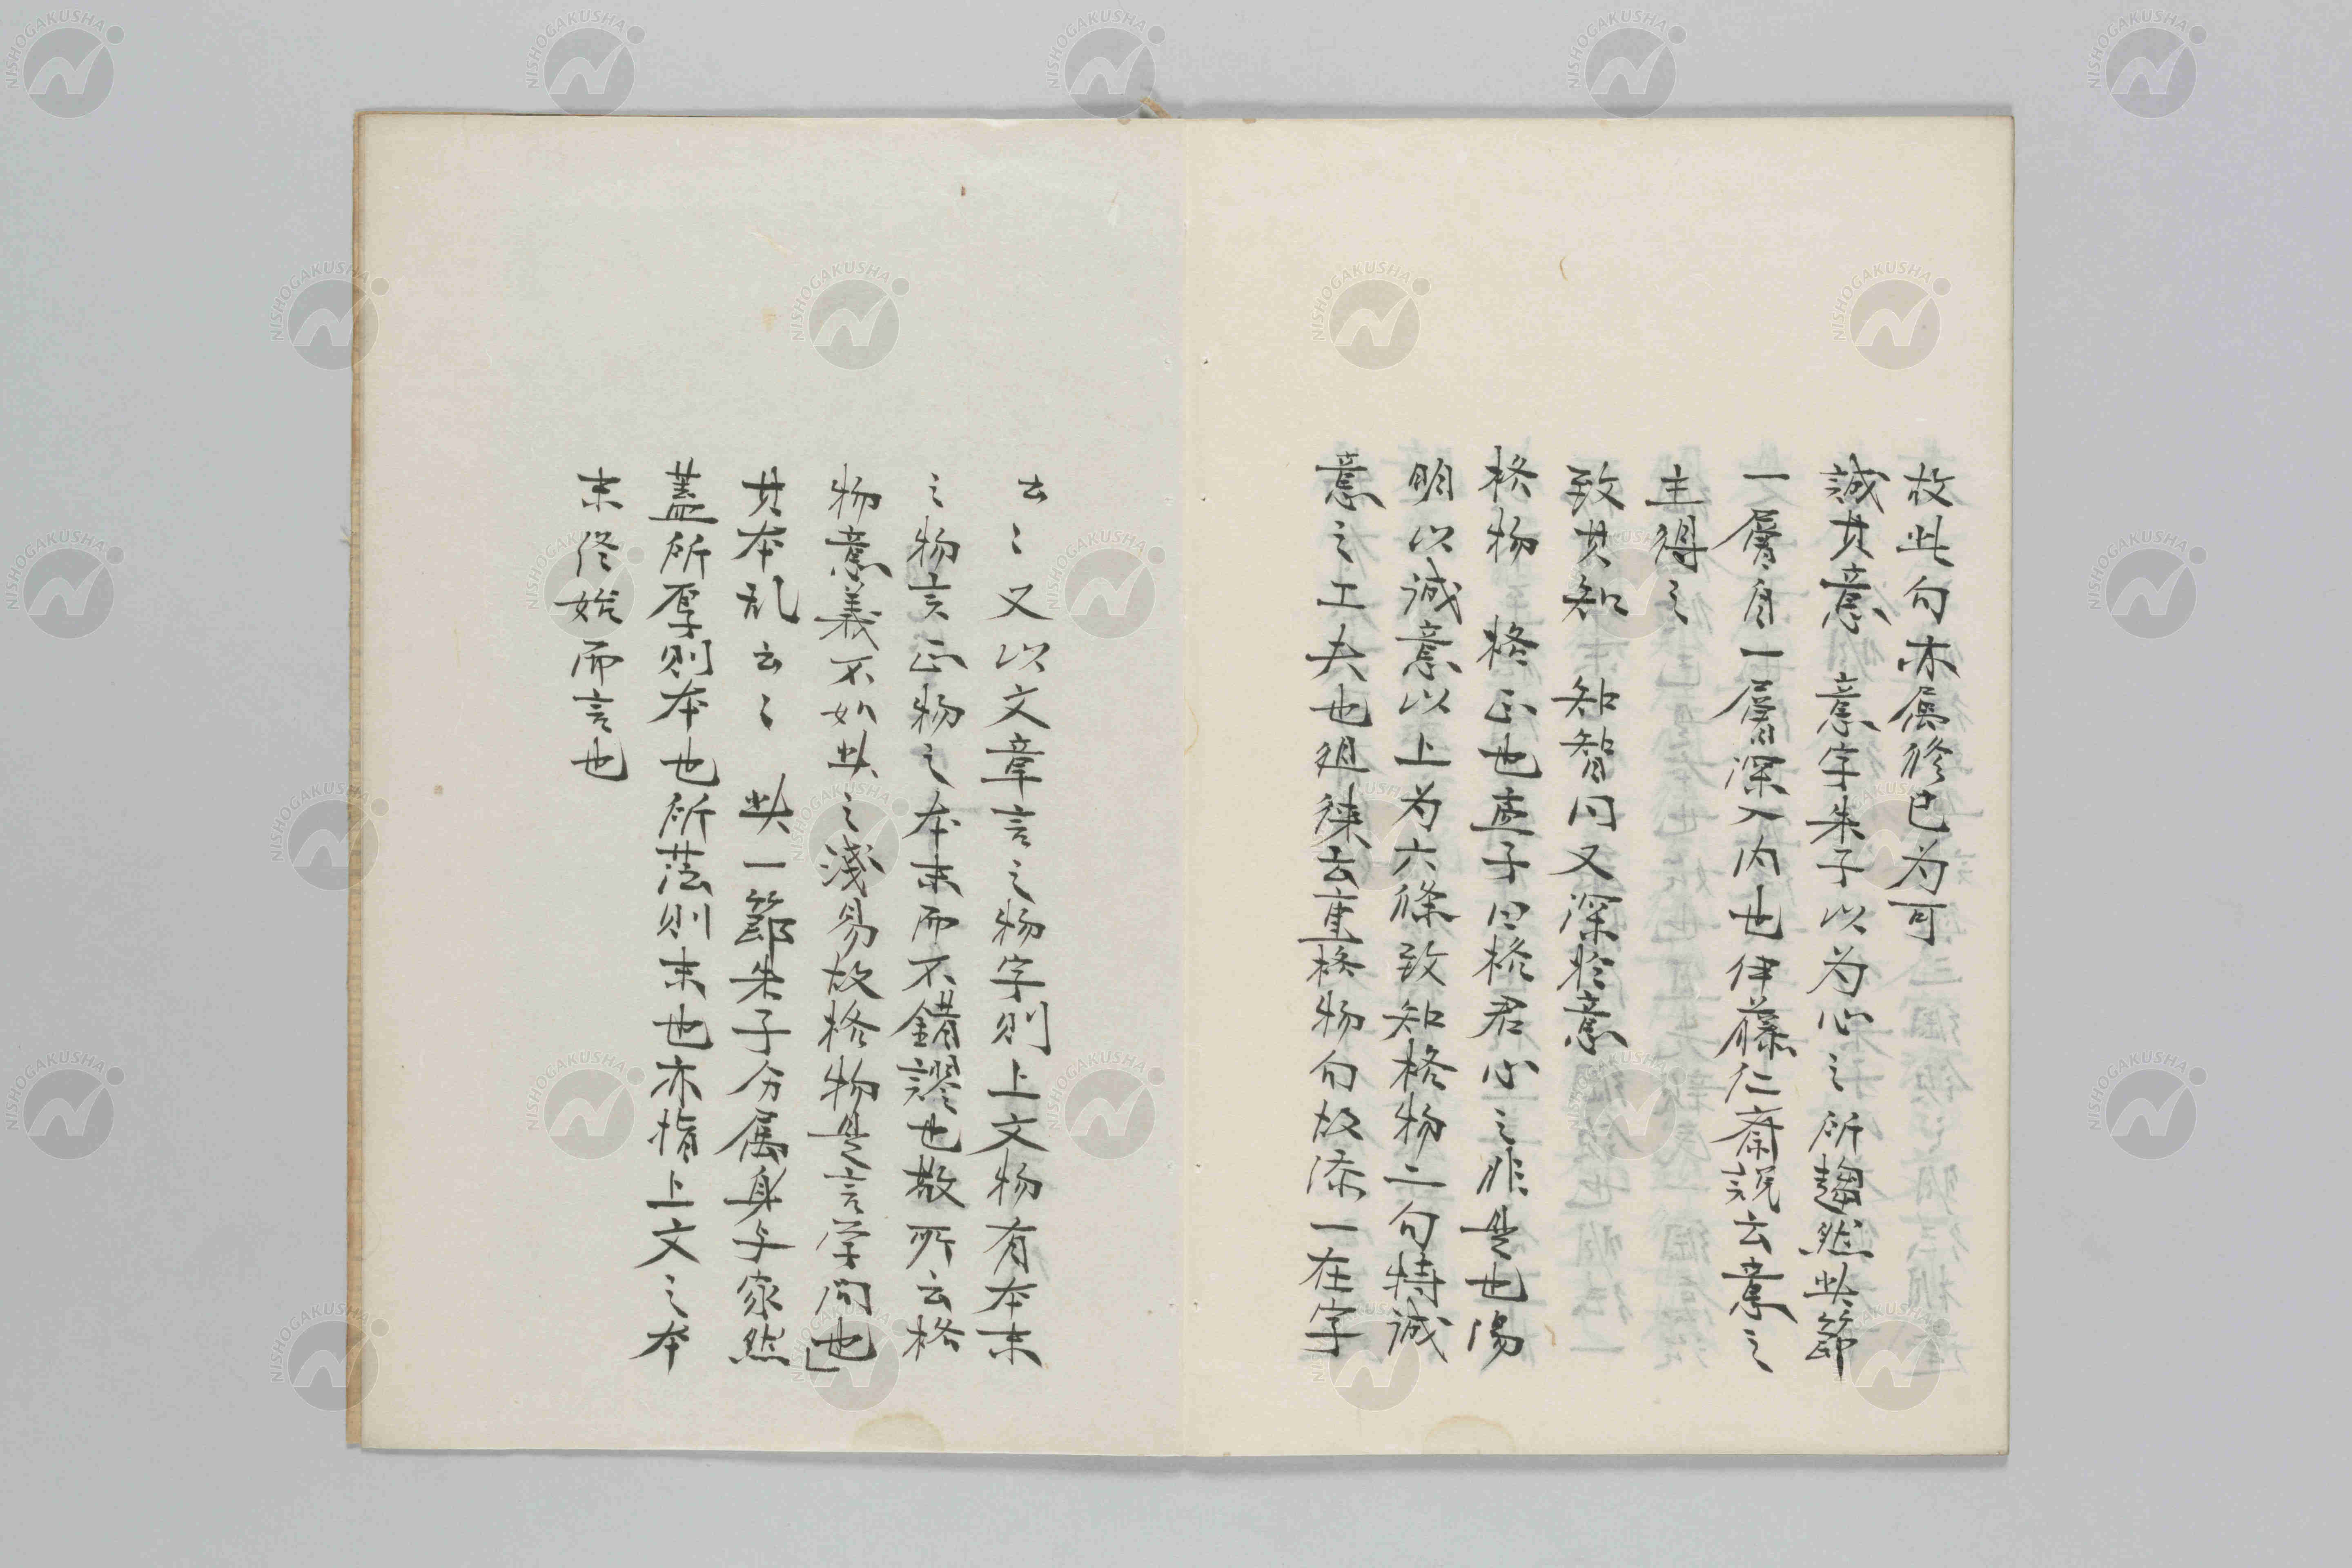 故此句亦属修已为可
誠其意　意字朱子以为心之所趨然此節
一層自一層深入内也伊藤仁斎説云意之
主得之
致其知　知智同又深於意
格物　格正也孟子曰格君心之非是也陽
明以誠意以上为六條致知格物二句特誠
意之工夫也徂徠云重格物句故添一在字
云〻又以文章言之物字則上文物有本末
之物言正物之本末而不錯謬也散所云格
物意義不如此之淺易故格物是言学问也」
其本乱云〻　此一節朱子分属身与家然
蓋所厚則本也所薄則末也亦指上文之本
末终始而言也
NISHOGAKUSHA